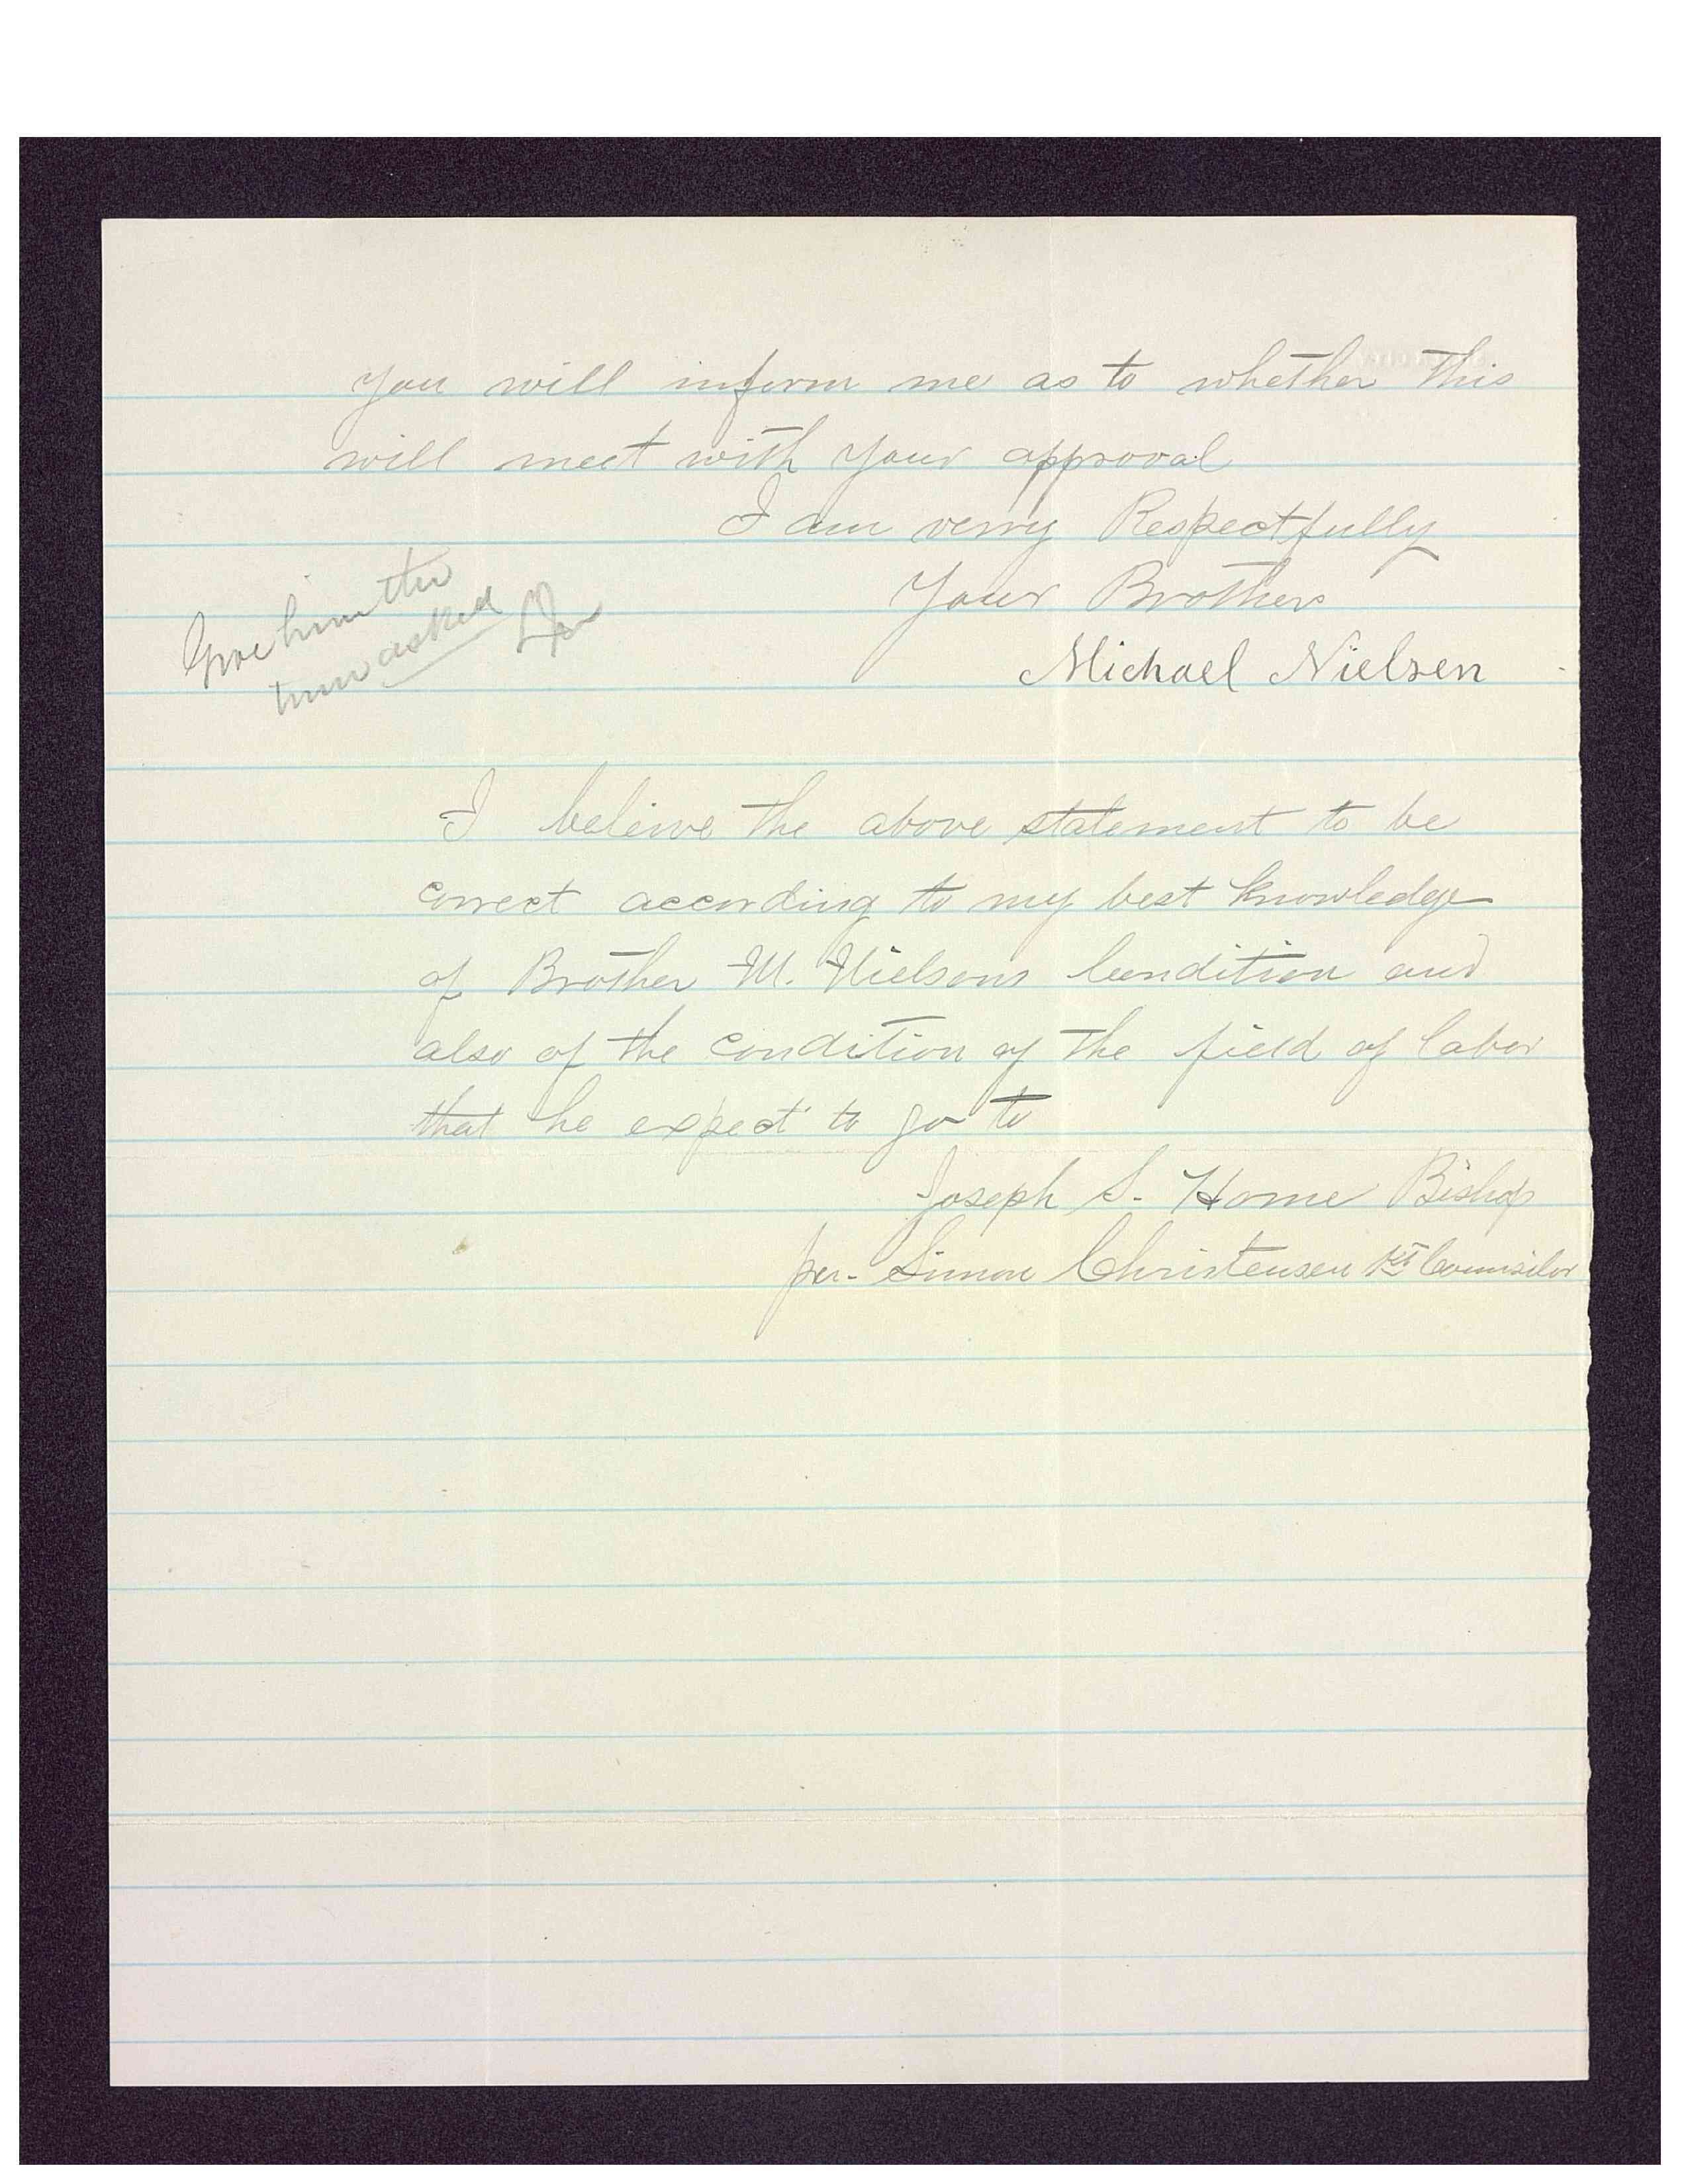 you will inform me as to whether this
will meet with your approval
I am verry Respectfully
Your Brother
Michael Nielsen
Give him the
time asked
I beleive the above statement to be
correct according to my best knowledge
of Brother M. Nielsons Condition and
also of the condition of the field of labor
that he expect to go to
Joseph S. Horne Bishop
per- Simon Christensen 1st Counsilor